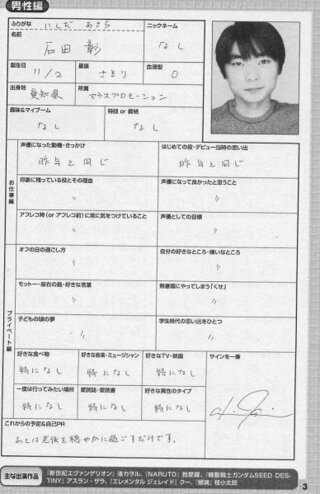 男性編
ふりがな
いしだ あきら
ニックネーム
名前
石田 彰
なし
誕生日
11/2
星座
さそり
血液型
O
出身地
愛知県
所属
マウスプロモーション
趣味&マイブーム
なし
特技 or 資格
なし
お仕事編
声優になった動機・きっかけ
昨年と同じ
はじめての役・デビュー当時の思い出
昨年と同じ
印象に残っている役とその理由
〃
声優になって良かったと思うこと
〃
アフレコ時(or アフレコ前)に常に気をつけていること
〃
声優としての目標
〃
プライベート編
オフの日の過ごし方
〃
自分の好きなところ・嫌いなところ
〃
モットー・座右の銘・好きな言葉
〃
無意識にやってしまう「くせ」
〃
子どもの頃の夢
〃
学生時代の思い出をひとつ
〃
好きな食べ物
特になし
好きな音楽・ミュージシャン
特になし
好きなTV・映画
特になし
サインを一筆
一度は行ってみたい場所
特になし
愛読誌・愛読書
特になし
好きな異性のタイプ
特になし
これからの予定&自己PR
あとは老後を穏やかに過ごすだけです。
主な出演作品
『新世紀エヴァンゲリオン』渚カヲル、『NARUTO』我愛羅、『機動戦士ガンダムSEED DES-
TINY』アスラン・ザラ、『エレメンタル ジェレイド』クー、『銀魂』桂小太郎
3